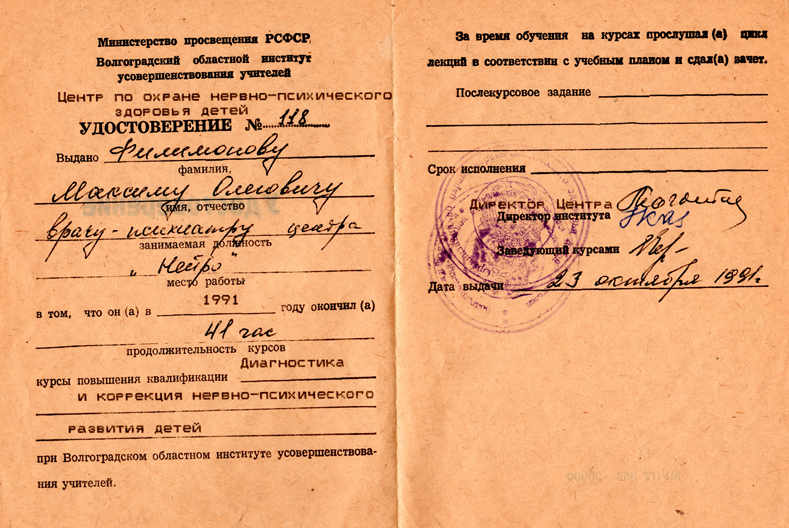 Министерство просвещения РСФСР
Волгоградский областной институт
усовершенствования учителей
Центр по охране нервно-психического
здоровья детей
УДОСТОВЕРЕНИЕ № 118
Выдано Филимонову
фамилия,
Максиму Олеговичу
имя, отчество
врачу-психиатру центра
занимаемая должность
„Нейро"
место работы
в том, что он (а) в 1991 году окончил (а)
41 час
продолжительность курсов
курсы повышения квалификации Диагностика
и коррекция нервно-психического
развития детей
при Волгоградском областном институте усовершенствова-
ния учителей.
За время обучения на курсах прослушал (а) цикл
лекций в соответствии с учебным планом и сдал(а) зачет.
Послекурсовое задание
Срок исполнения
Директор Центра
Директор института
Заведующий курсами
Дата выдачи 23 октября 1991г.